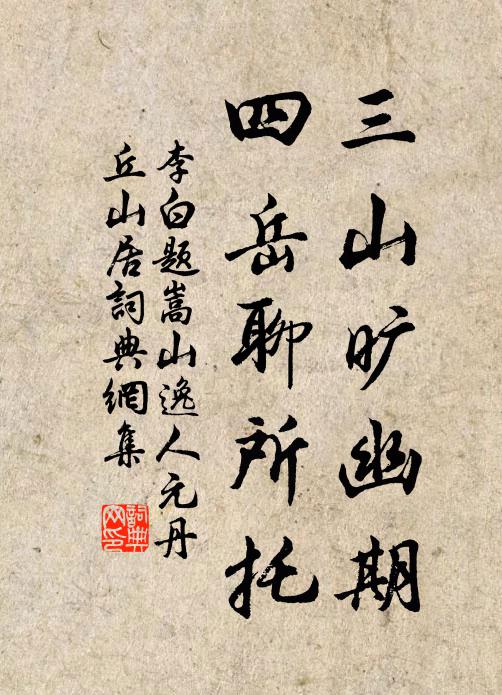 三山旷幽期
四岳聊所托
李白题嵩山逸人元丹
丘山居詞典網集
詞典
网印